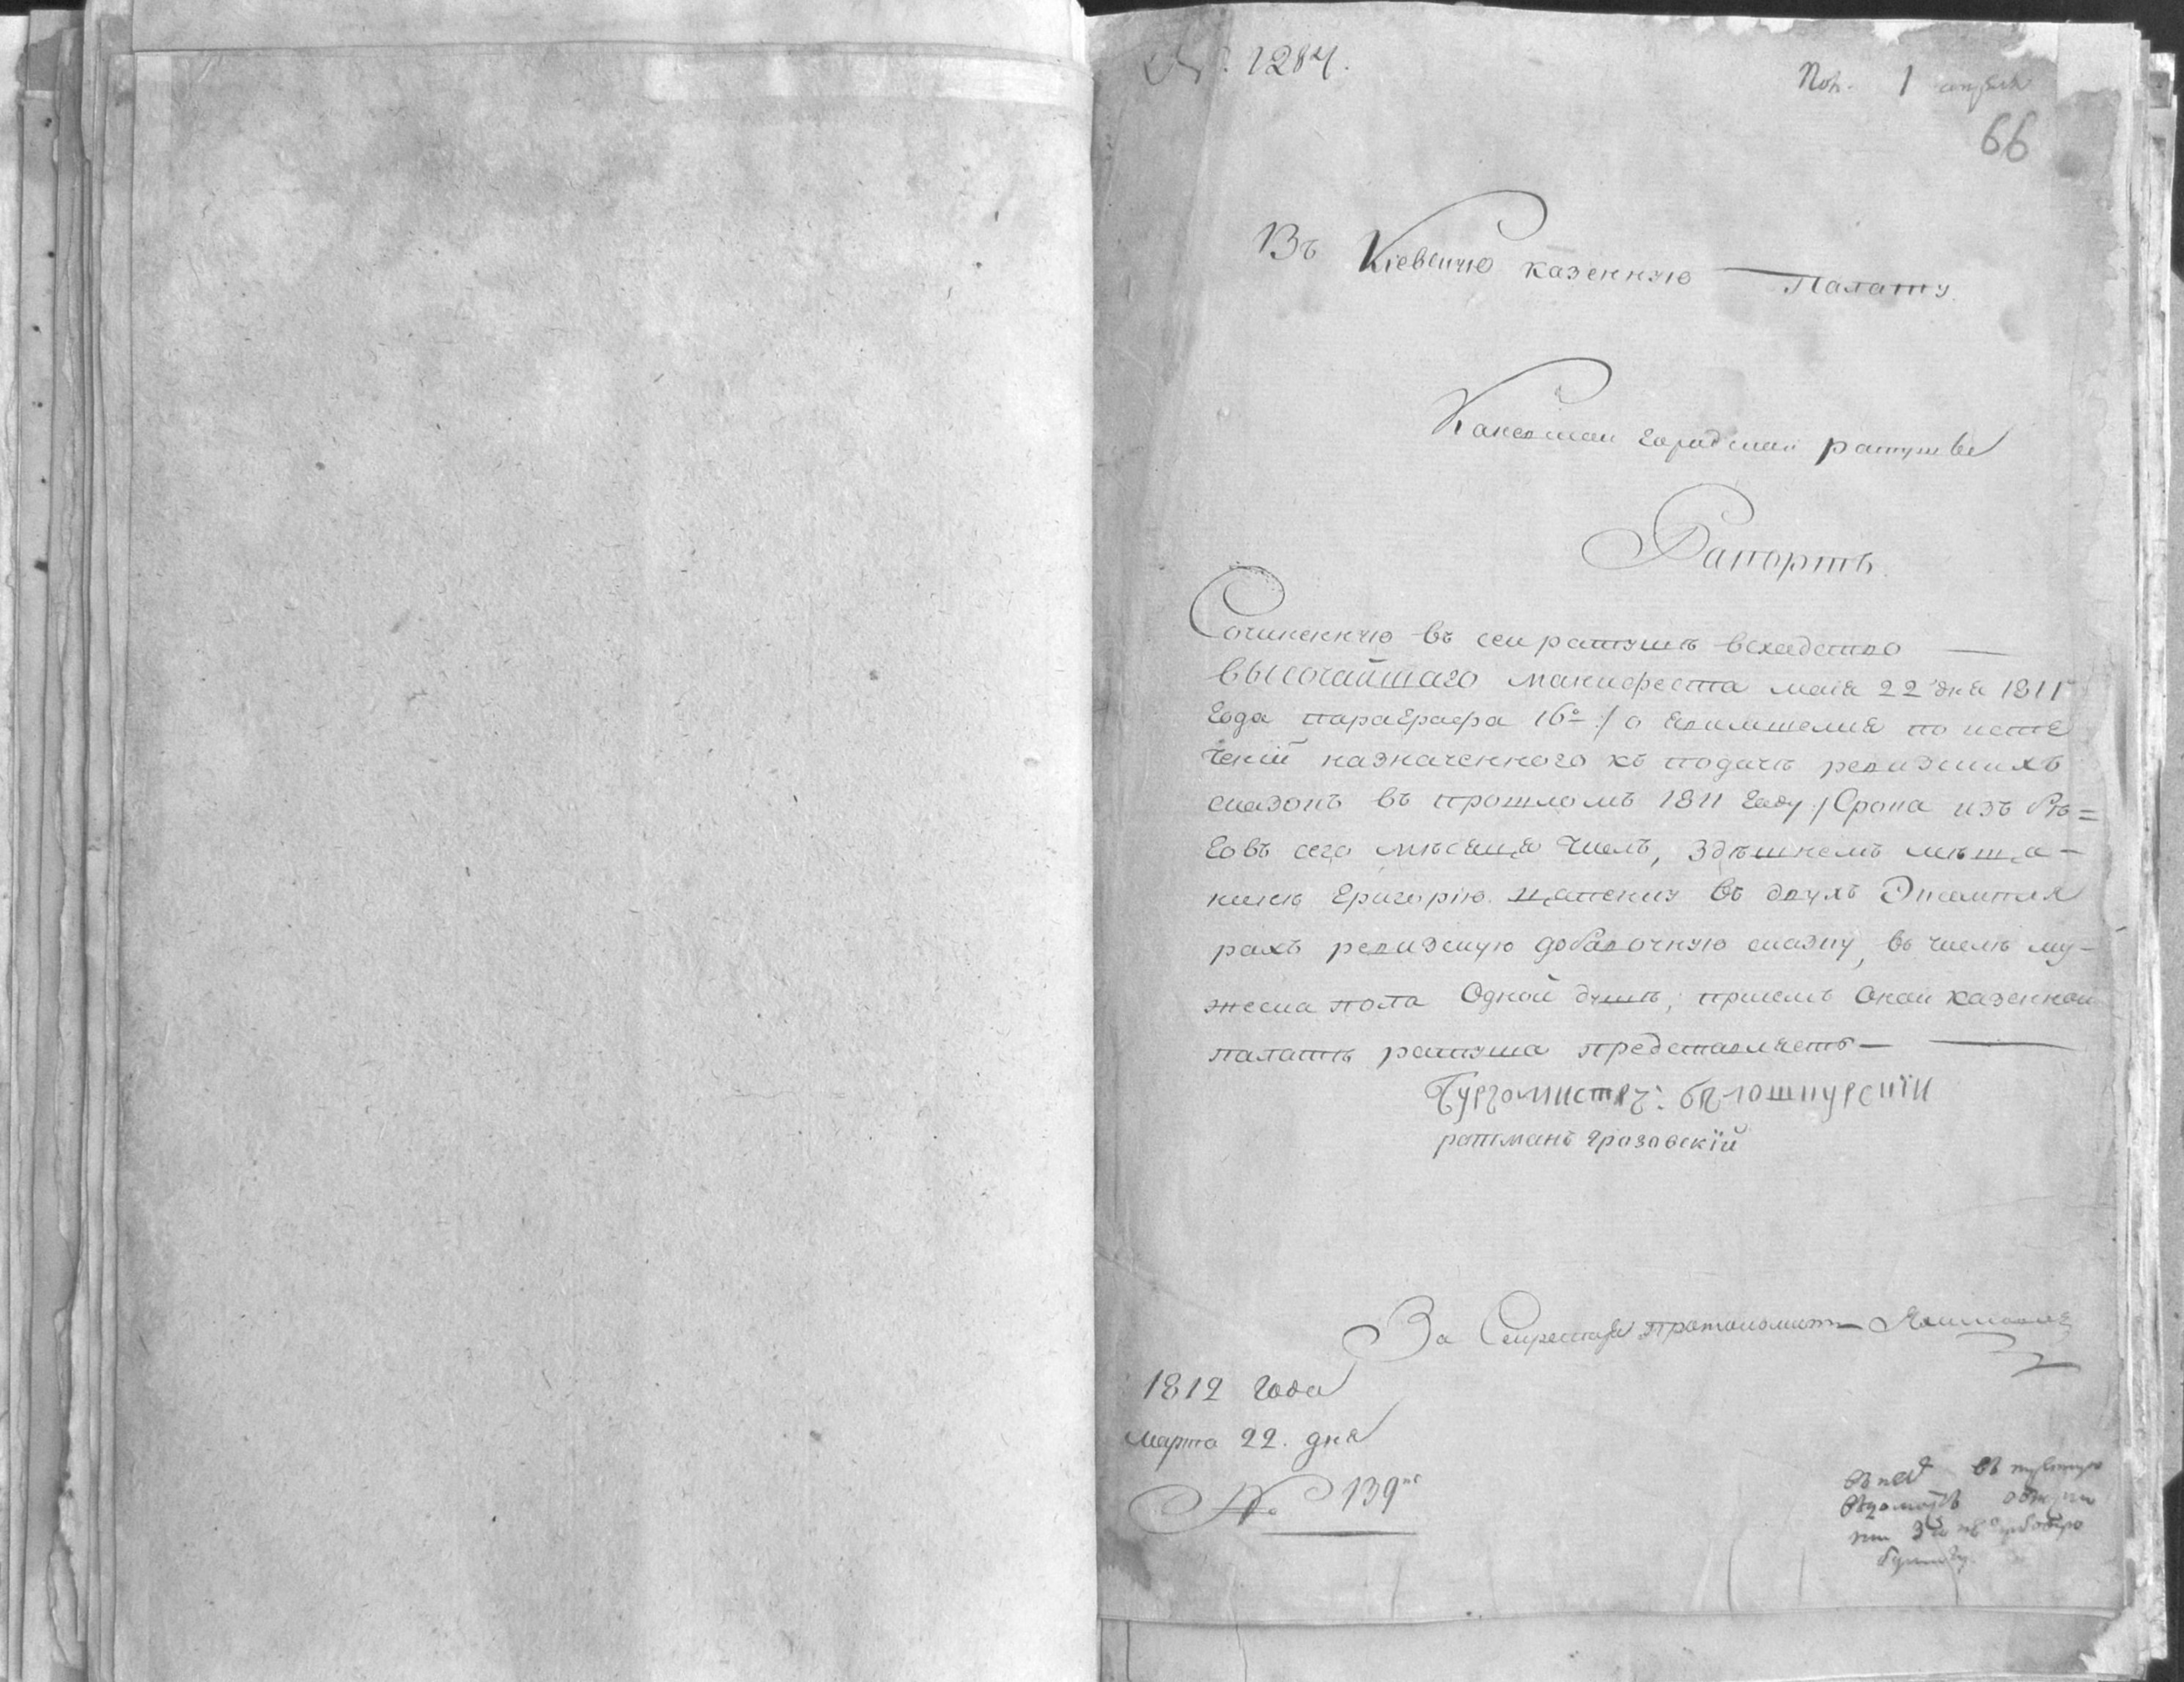 №. 1284.
Пол. 1 апреля
66
Въ Кіевскую казенную Палату
Каневской городской ратуши
Рапортъ
Сочиненную въ сей ратушѣ вследство
высочайшаго манифеста маія 22 дня 1811
года параграфа 16º / о по исте
ченій назначенного къ подачѣ ревизскихъ
сказокъ въ прошломъ 1811 году / срока изъ бѣ=
говъ сего мѣсяца числъ, здѣшнемъ мѣща-
нинѣ григорію въ двухъ Экземпля
рахъ ревизскую добавочную сказку, въ числѣ му-
жеска пола Одной душѣ, присемъ Оной казенной
палатѣ ратуша представляетъ
Бургомистръ: бѣлошкурскій
ратманъ грозовскій
За Секретаря протоколистъ
1812 года
марта 22. дня
№ 139